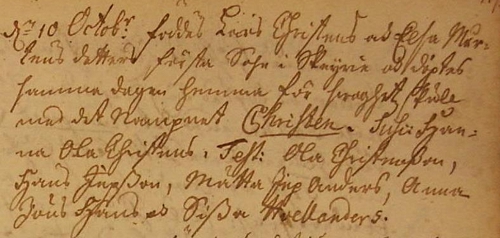 Dn 10 Octobr föddes Lars Christens och Elsa Mår-
tens dotters första Sohn i Skeyrie och döptes
samma dagen hemma för swaghet skull
med det Nampnet Christen. Susc: Han-
na Ola Christens. Test: Ola Christenson,
Hans Jepson, Matta Jep Anders, Anna
Jöns Hans och Sissa Hollanders.